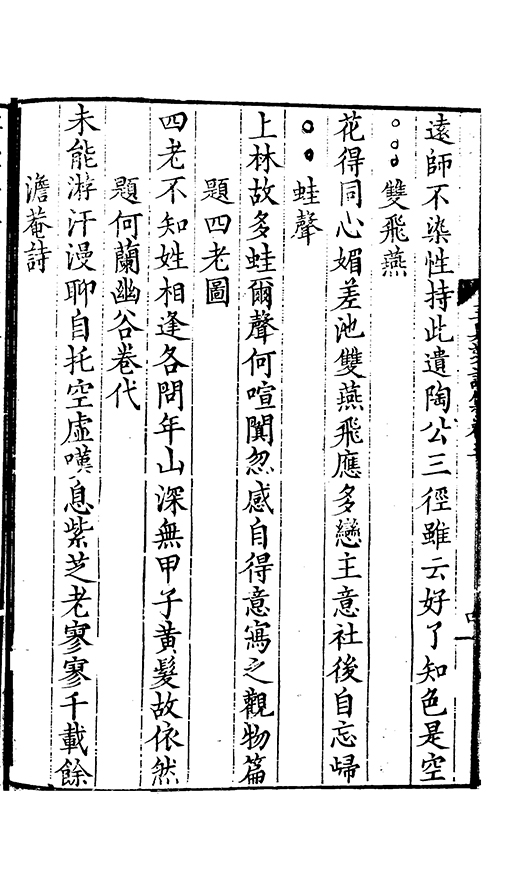 遠師不染性持此遺陶公三徑雖云好了知色是空
雙飛燕
花得同心媚差池雙燕飛應多戀主意社後自忘歸
蛙聲
上林故多蛙爾聲何喧闐忽感自得意寫之觀物篇
題四老圖
四老不知姓相逢各問年山深無甲子黃髮故依然
題何蘭幽谷卷代
未能游汗漫聊自托空虛嘆息紫芝老寥寥千載餘
澹菴詩